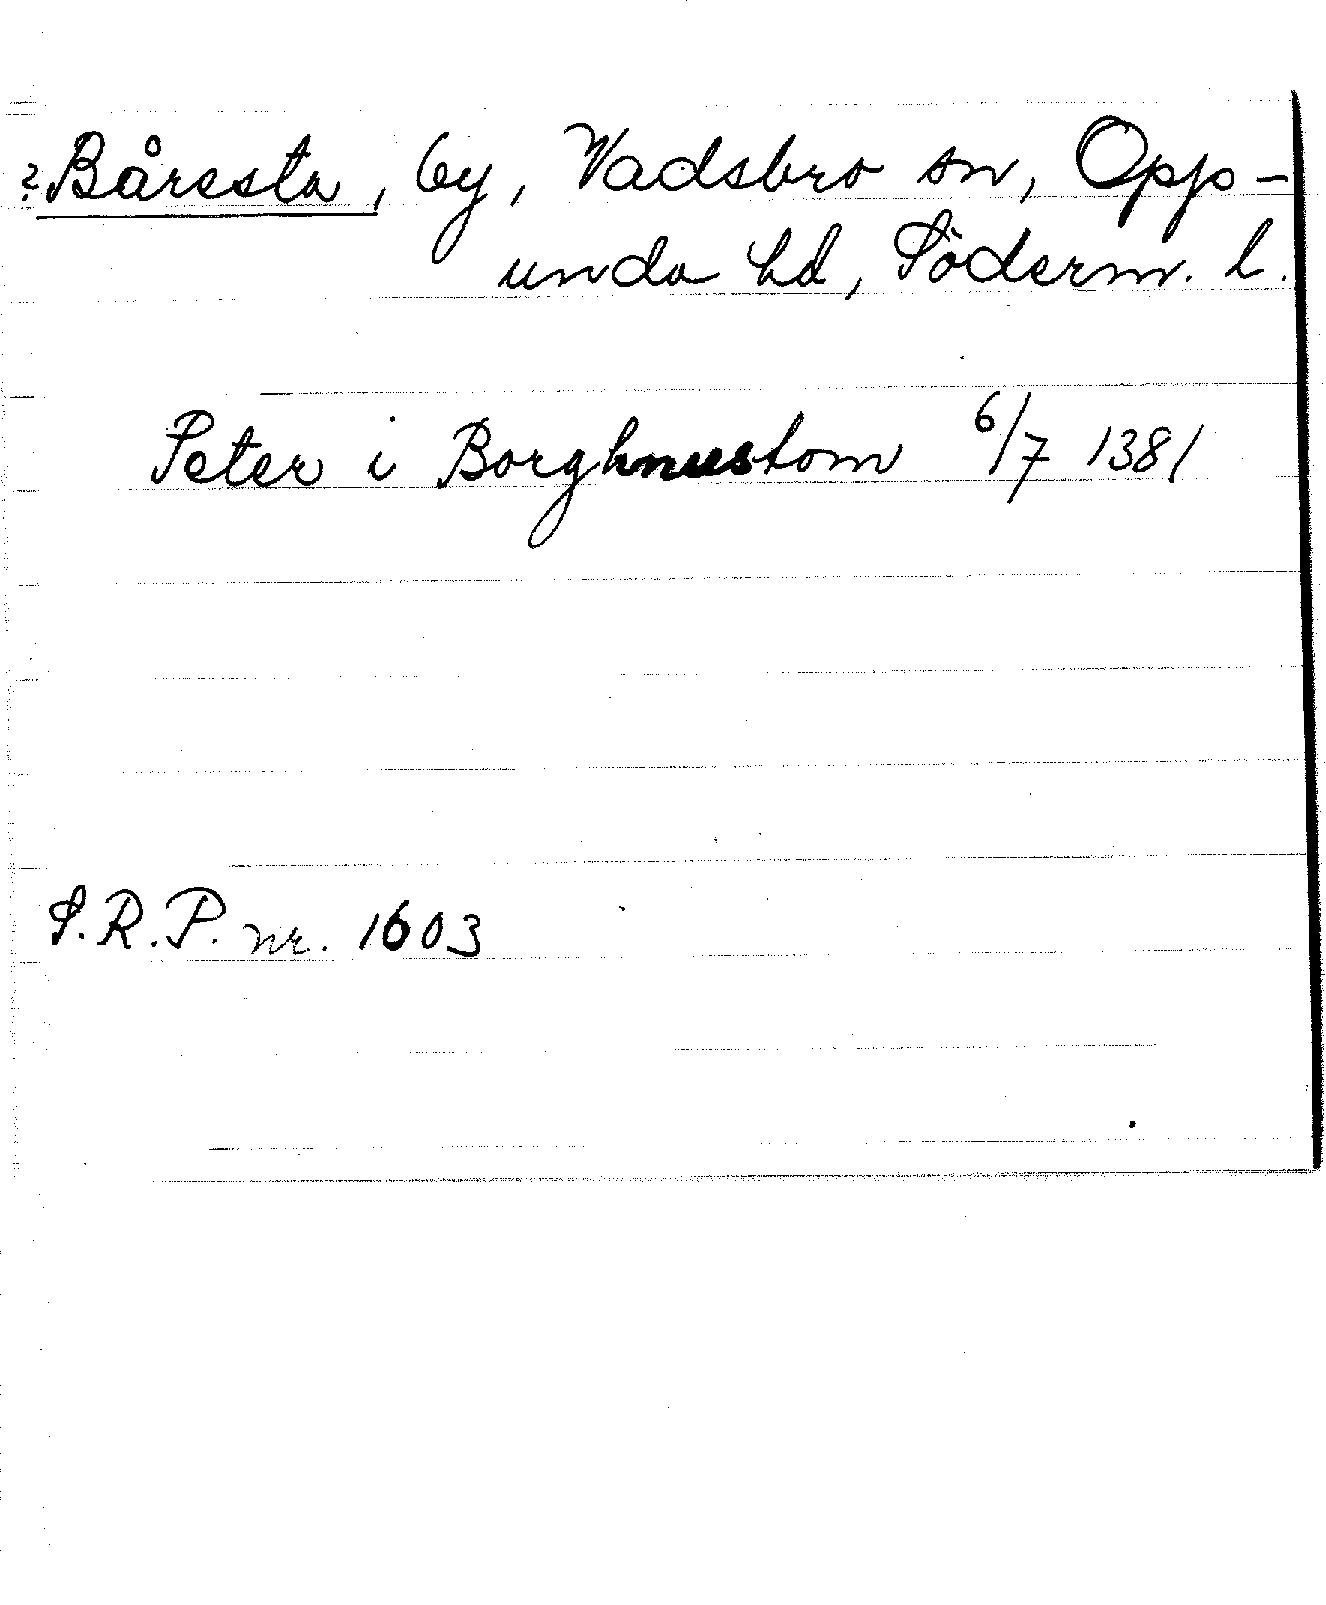 ? Båresta, by, Vadsbro sn, Opp-
unda hd, Söderm. l.
Peter i Borghnustom 6/7 1381
S.R.P. nr. 1603